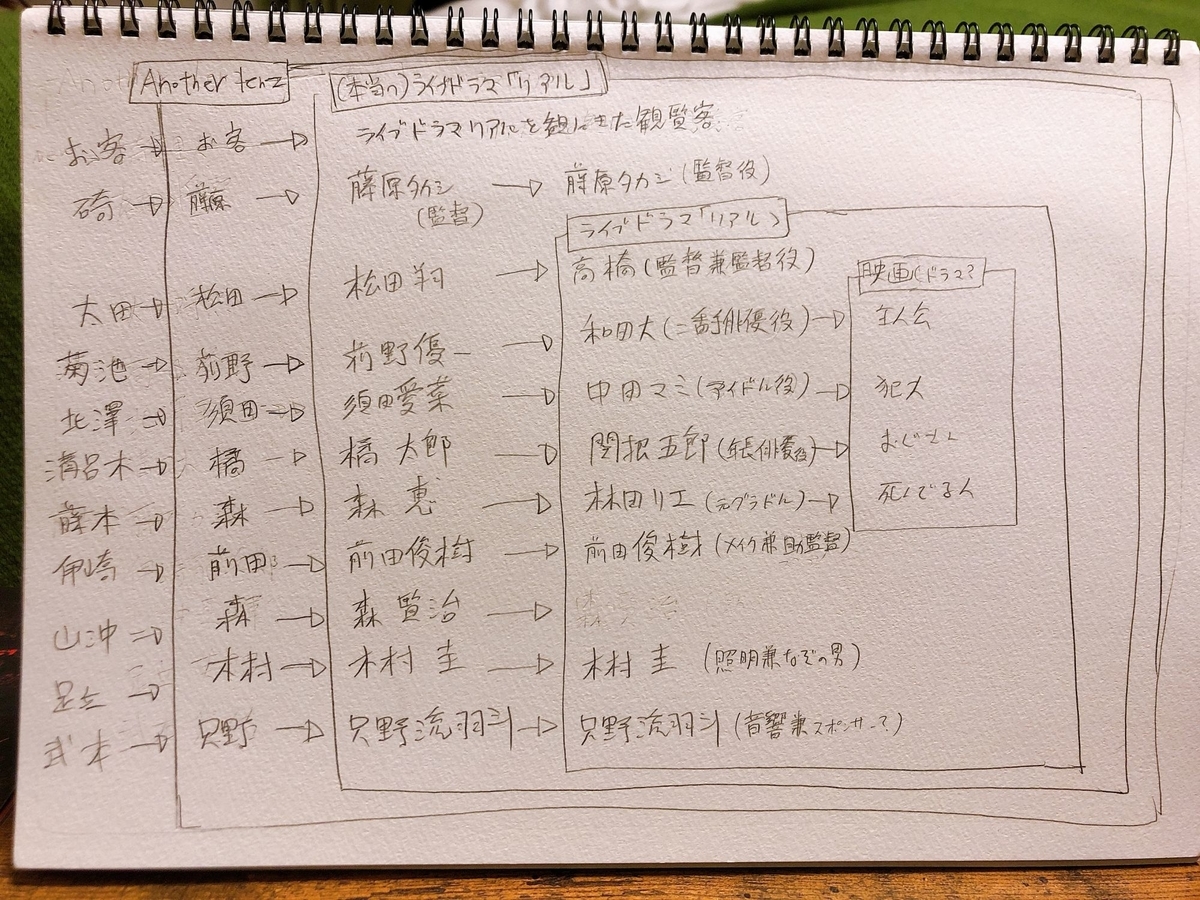 Another tenz
(本当の)ライブドラマ「リアル」
お客 → お客 → ライブドラマリアルを観にきた観覧客
碕 → 藤原 → 藤原タカシ(監督) → 藤原タカシ(監督役)
ライブドラマ「リアル」
太田 → 松田 → 松田 翔 → 高橋(監督兼監督役)
映画(ドラマ?)
菊池 → 前野 → 前野優一 → 和田大(二番手俳優役) → 主人公
北澤 → 須田 → 須田愛菜 → 中田マミ(アイドル役) → 犯人
溝呂木 → 橘 → 橘 太郎 → 関根五郎(年長俳優役) → おじさん
藤本 → 森 → 森 恵 → 林田リエ(元グラドル) → 死んでる人
伊崎 → 前田 → 前田俊樹 → 前田俊樹(メイク兼助監督)
山沖 → 森 → 森 賢治 →
足立 → 木村 → 木村 圭 → 木村 圭 (照明兼なぞの男)
武本 → 只野 → 只野流羽斗 → 只野流羽斗(音響兼スポンサー?)